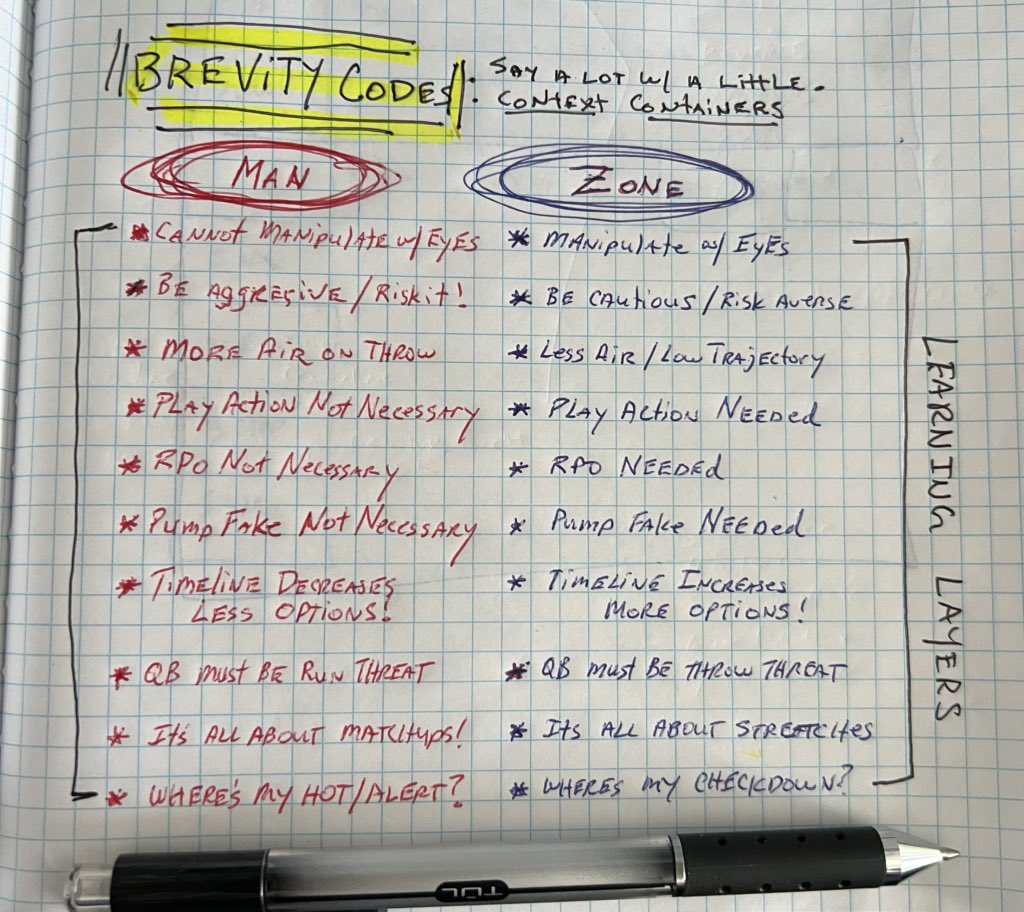 BREVITY CODES: SAY A LOT w/ A LITTLE.
CONTEXT CONTAINERS
MAN
* CANNOT MANIPULATE w/ EYES
* BE AGGRESIVE / RISK IT!
* MORE AIR ON THROW
* PLAY ACTION NOT NECESSARY
* RPO NOT NECESSARY
* PUMP FAKE NOT NECESSARY
* TIMELINE DECREASES
LESS OPTIONS!
* QB MUST BE RUN THREAT
* It's ALL ABOUT MATCHUPS!
* WHERE'S MY HOT/ALERT?
ZONE
* MANIPULATE w/ EYES
* BE CAUTIOUS / RISK AVERSE
* LESS AIR / LOW TRAJECTORY
* PLAY ACTION NEEDED
* RPO NEEDED
* PUMP FAKE NEEDED
* TIMELINE INCREASES
MORE OPTIONS!
* QB MUST BE THROW THREAT
* Its ALL ABOUT STRETCHES
* WHERES MY CHECKDOWN?
LEARNING LAYERS
TUL